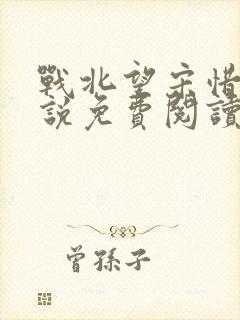 戰北望宋惜
說免費閱讀
曾孫子